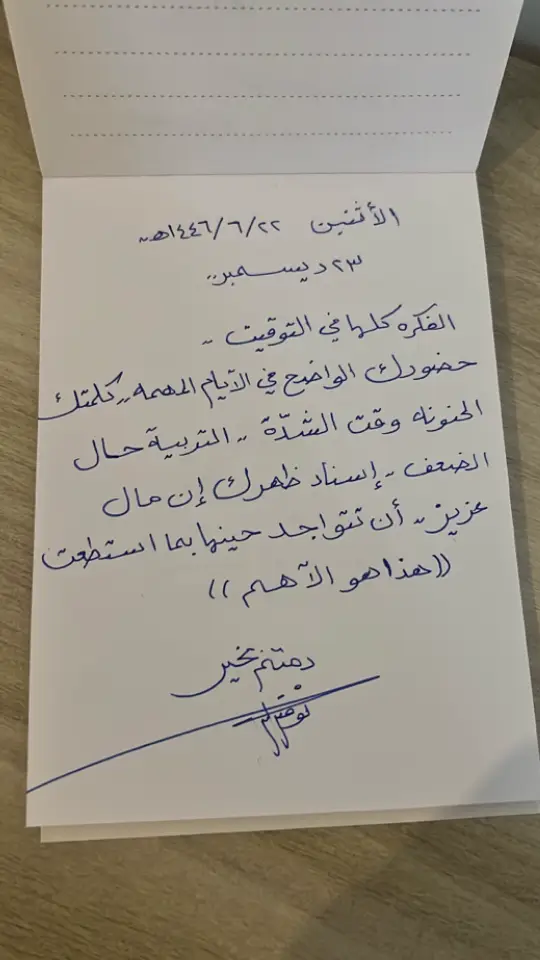 الأثنين ٢٢/٦/١٤٤٦هـ..
٢٣ ديسمبر..
الفكره كلها في التوقيت ..
حضورك الواضح في الأيام المهمه.. كلمتك
الحنونه وقت الشدّة .. التربية حال
الضعف .. إسناد ظهرك إن مال
عزيز .. أن تتواجد حينها بما استطعت
((هذا هو الآهم))
دمتم بخير